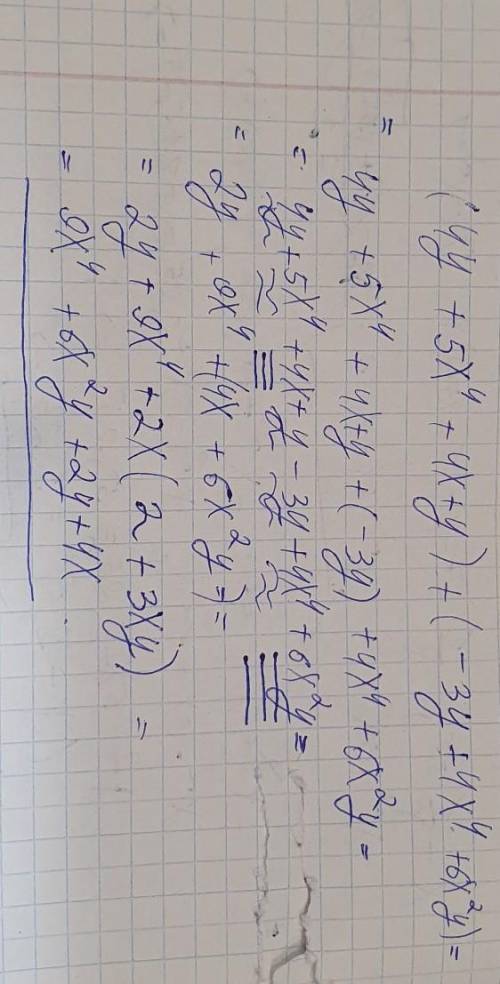 (4y + 5x⁴ + 4x+y) + (-3y + 4x⁴ + 6x²y) =
= 4y + 5x⁴ + 4x+y + (-3y) + 4x⁴ + 6x²y =
= 4y + 5x⁴ + 4x + y - 3y + 4x⁴ + 6x²y =
= 2y + 9x⁴ + (4x + 6x²y) =
= 2y + 9x⁴ + 2x(2 + 3xy) =
= 9x⁴ + 6x²y + 2y + 4x.